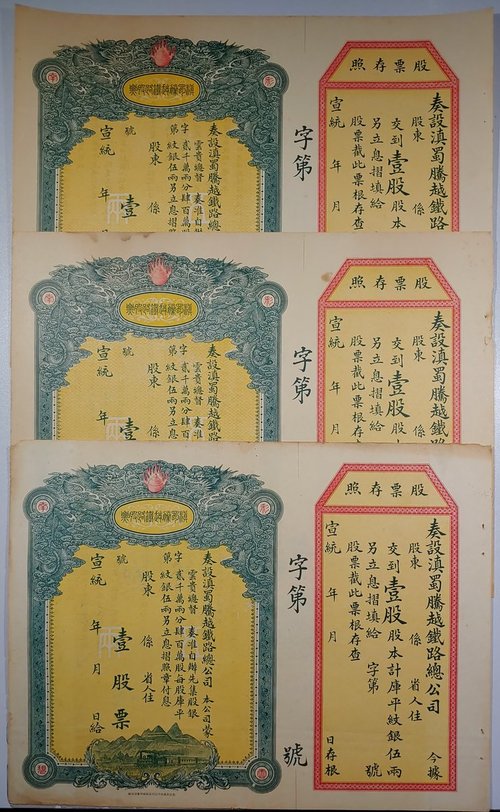 股票存照
奏設滇蜀騰越鐵路
股東 係
交到壹股股本
另立息摺填給
股票截此票根存查
宣統 年 月
字第
奏設滇蜀騰越鐵路總
雲貴總督 奏准自
貳千萬兩分肆百萬
紋銀伍兩另立息摺
字第 號
股東 係
壹
宣統 年
股票存照
奏設滇蜀騰越鐵路
股東 係
交到壹股股本
另立息摺填給
股票截此票根存
宣統 年 月
字第
奏設滇蜀騰越鐵路總
雲貴總督 奏准自
貳千萬兩分肆百萬
紋銀伍兩另立息
字第 號
股東 係
壹
宣統 年
股票存照
奏設滇蜀騰越鐵路總公司 今據
股東 係 省人住
交到壹股股本計庫平紋銀伍兩
另立息摺填給 字第 號
股票截此票根存查
宣統 年 月 日存根
字第 號
奏設滇蜀騰越鐵路總公司 本公司蒙
雲貴總督 奏准自辦先集股銀
貳千萬兩分肆百萬股每股庫平
紋銀伍兩另立息摺照章付息
字第 號
股東 係 省人住
壹股票
宣統 年 月 日給